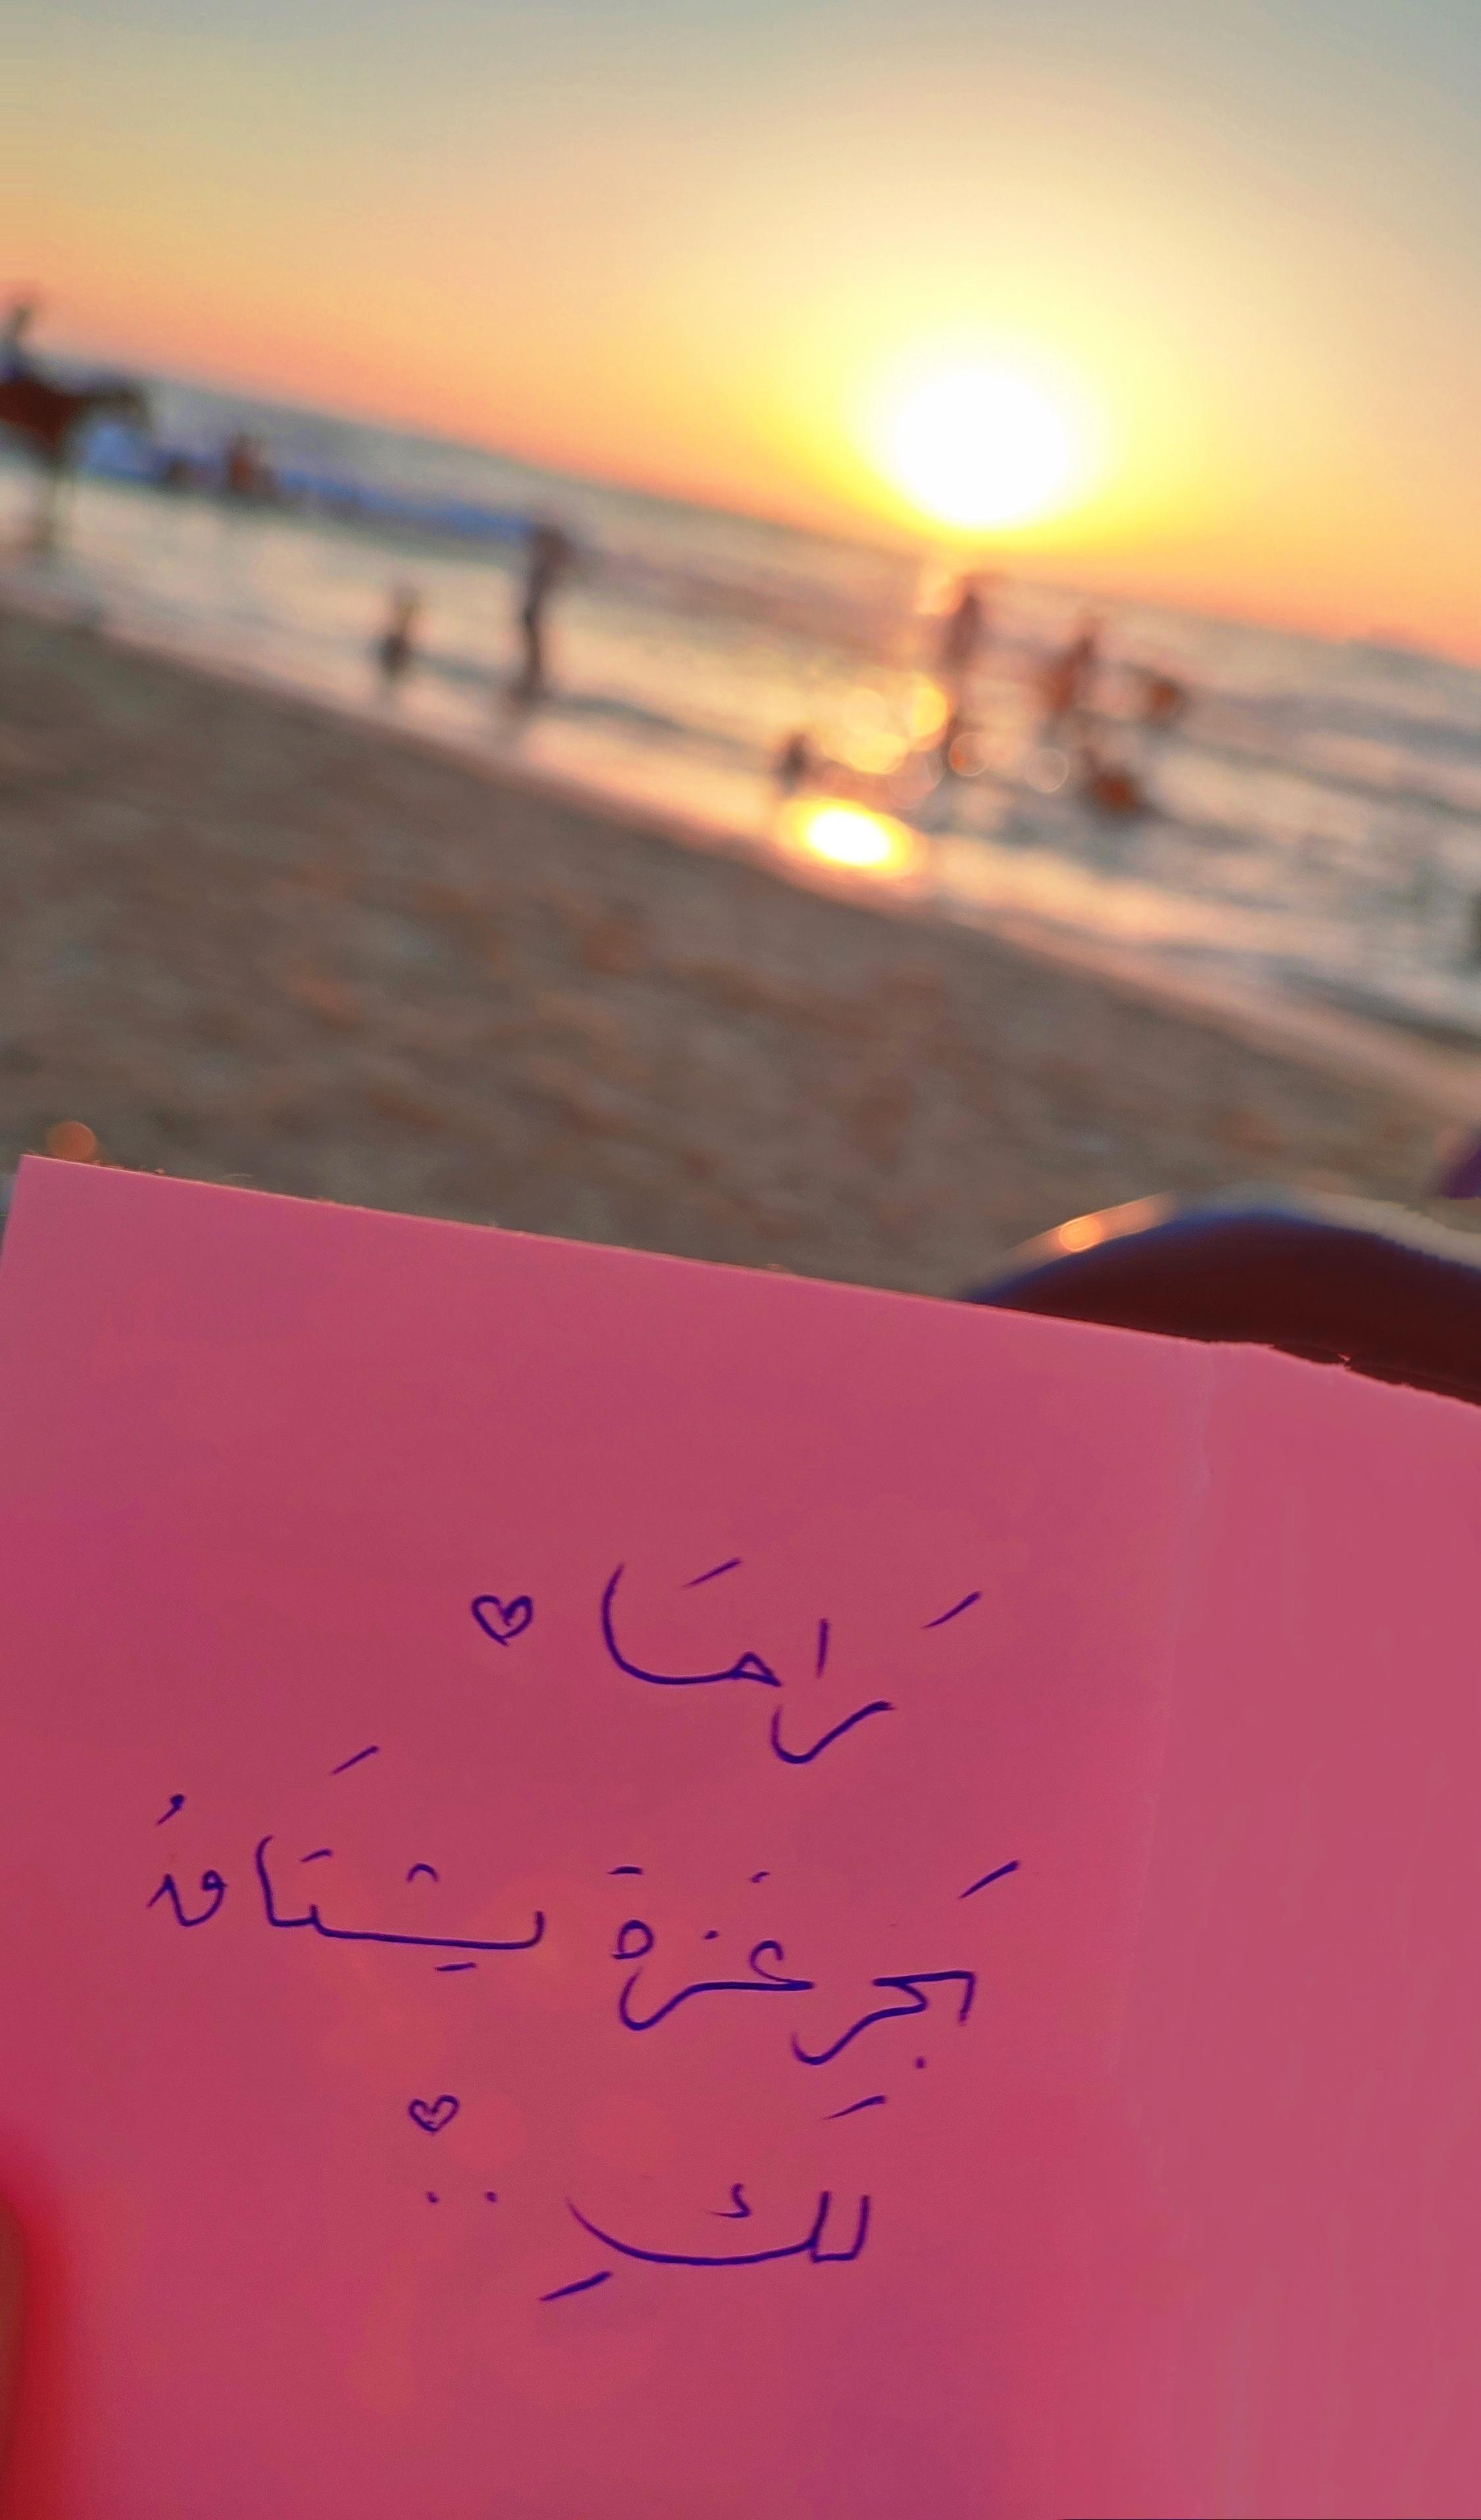 رَامَا ♡
بَحر غَزة يشتَاقُ
لَكِ .. ♡